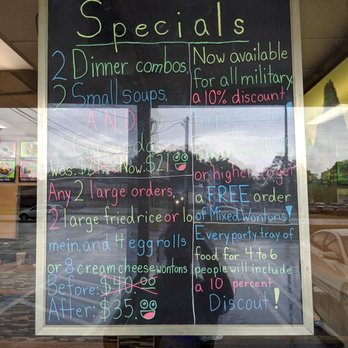 Specials
2 Dinner combos,
2 Small soups,
AND
Was: Now: $21
Any 2 large orders,
2 large fried rice or lo
mein, and 4 egg rolls
or 8 cream cheese wontons
Before: $40.00
After: $35.
Now available
for all military
a 10% discount
or higher, get
a FREE order
of Mixed Wontons!
Every party tray of
food for 4 to 6
people will include
a 10 percent
Discout!